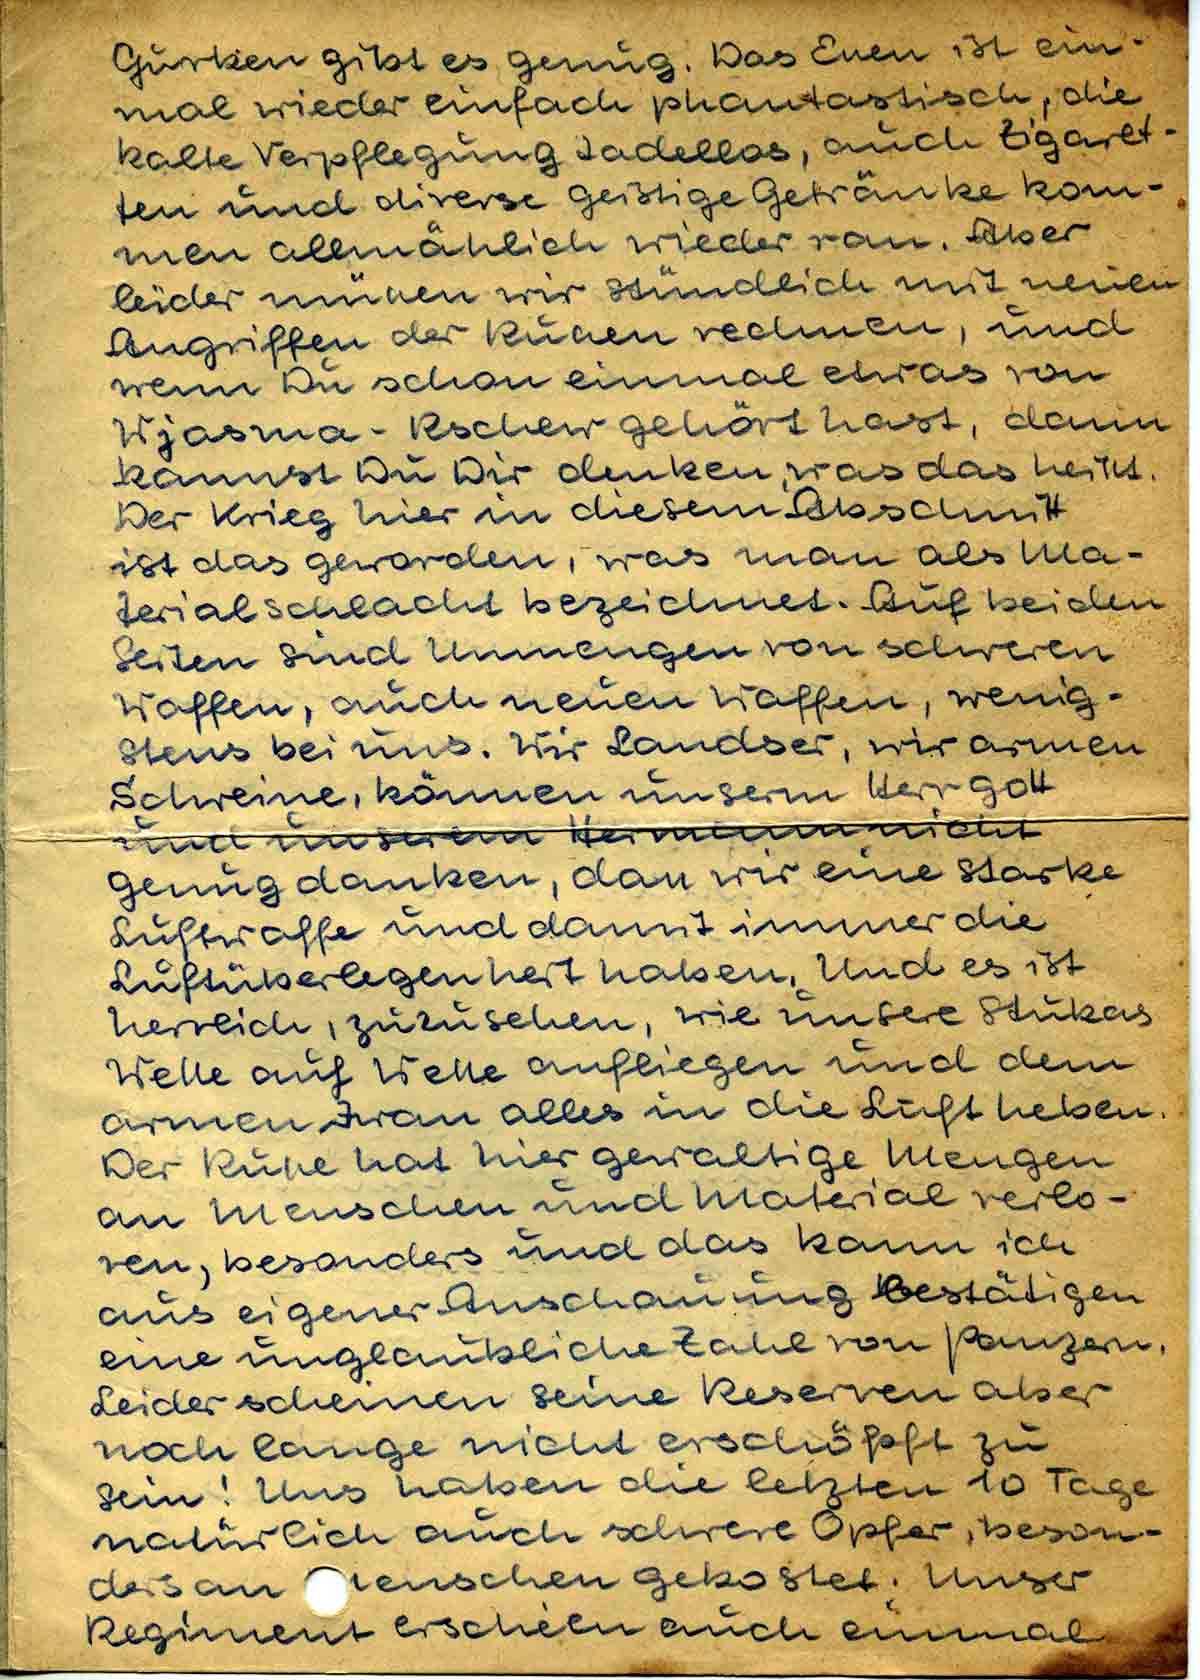 Gurken gibt es genug. Das Essen ist ein-
mal wieder einfach phantastisch, die
kalte Verpflegung tadellos, auch Zigaret-
ten und diverse geistige Getränke kom-
men allmählich wieder ran. Aber
leider müssen wir stündlich mit neuen
Angriffen der Russen rechnen, und
wenn Du schon einmal etwas von
Wjasma - Rschew gehört hast, dann
kannst Du Dir denken, was das heißt.
Der Krieg hier in diesem Abschnitt
ist das geworden, was man als Ma-
terialschlacht bezeichnet. Auf beiden
Seiten sind Unmengen von schweren
Waffen, auch neuen Waffen, wenig-
stens bei uns. Wir Landser, wir armen
Schweine, können unserm Herrgott
und unserem Hermann nicht
genug danken, dass wir eine starke
Luftwaffe und damit immer die
Luftüberlegenheit haben. Und es ist
herrlich, zuzusehen, wie unsere Stukas
Welle auf Welle anfliegen und dem
armen Iwan alles in die Luft heben.
Der Russe hat hier gewaltige Mengen
an Menschen und Material verlo-
ren, besonders und das kann ich
aus eigener Anschauung bestätigen
eine unglaubliche Zahl von Panzern.
Leider scheinen seine Reserven aber
noch lange nicht erschöpft zu
sein! Uns haben die letzten 10 Tage
natürlich auch schwere Opfer, beson-
ders an Menschen gekostet. Unser
Regiment erschien auch einmal